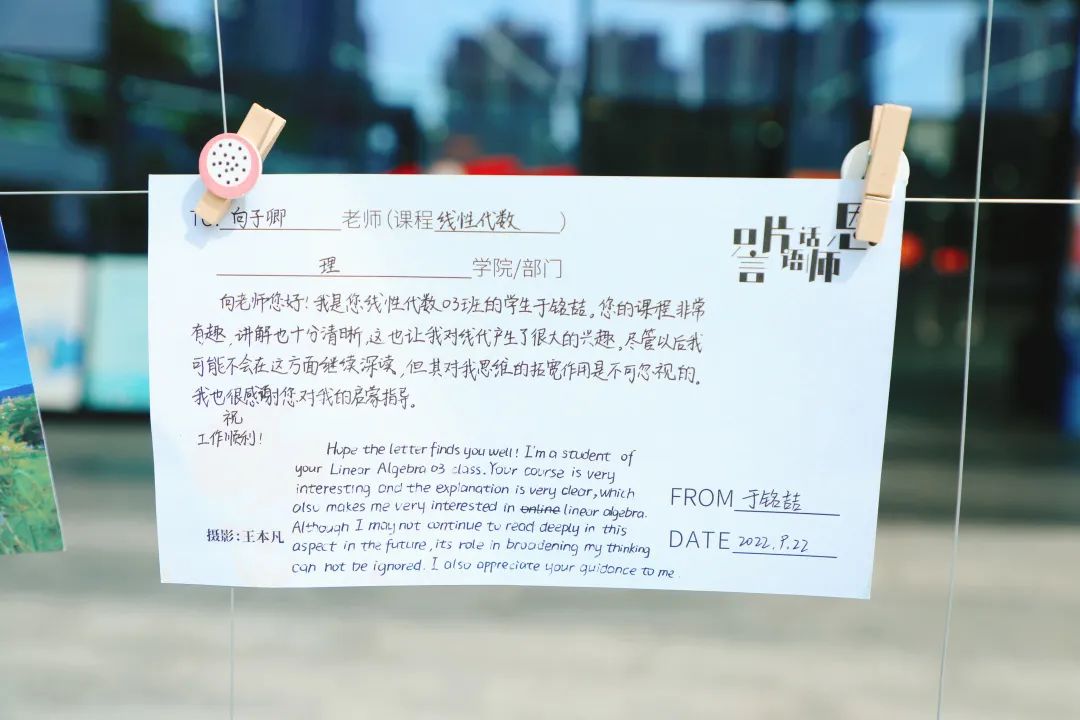 TO: 向子卿 老师(课程 线性代数 )
理 学院/部门
片言话语 师恩
向老师您好!我是您线性代数03班的学生于铭喆。您的课程非常
有趣,讲解也十分清晰,这也让我对线代产生了很大的兴趣。尽管以后我
可能不会在这方面继续深读,但其对我思维的拓宽作用是不可忽视的。
我也很感谢您对我的启蒙指导。
祝
工作顺利!
Hope the letter finds you well! I'm a student of
your Linear Algebra 03 class. Your course is very
interesting and the explanation is very clear, which
also makes me very interested in online linear algebra.
Although I may not continue to read deeply in this
aspect in the future, its role in broadening my thinking
can not be ignored. I also appreciate your guidance to me.
摄影:王本凡
FROM 于铭喆
DATE 2022.9.22